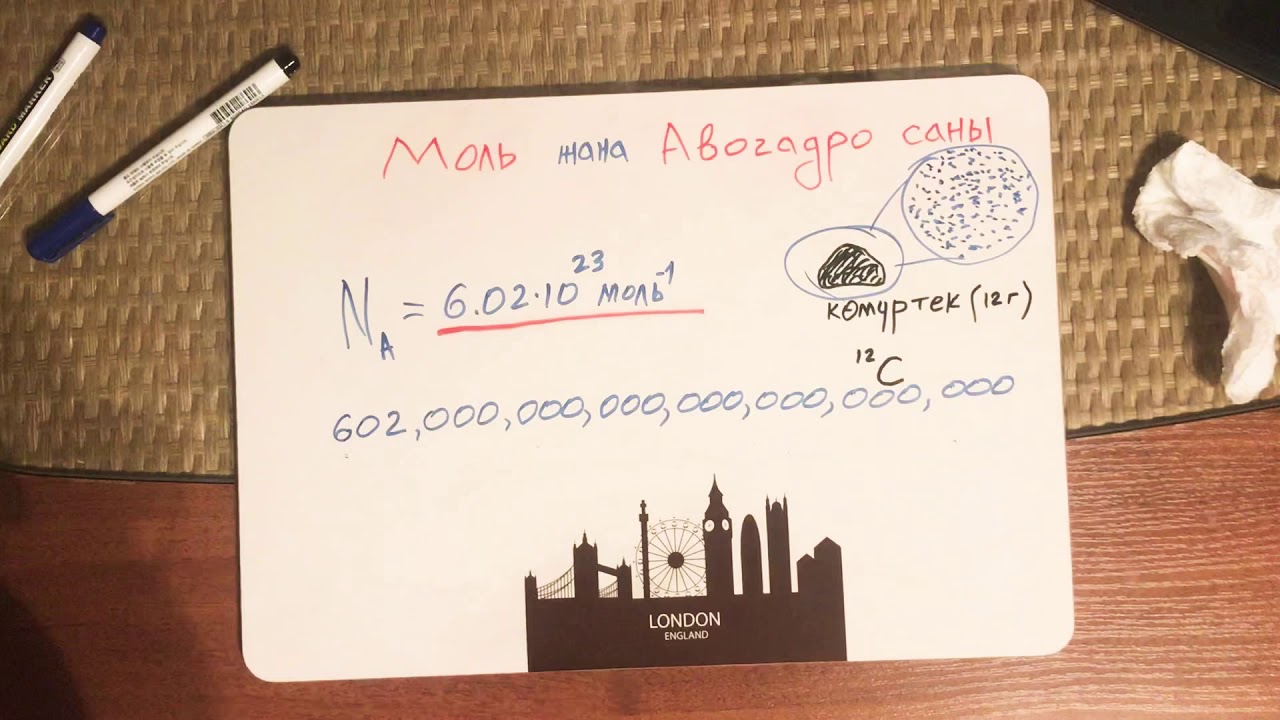 Моль жана Авогадро саны
N_A = 6.02·10²³ моль⁻¹
көмүртек (12г)
¹²C
602,000,000,000,000,000,000,000
LONDON
ENGLAND